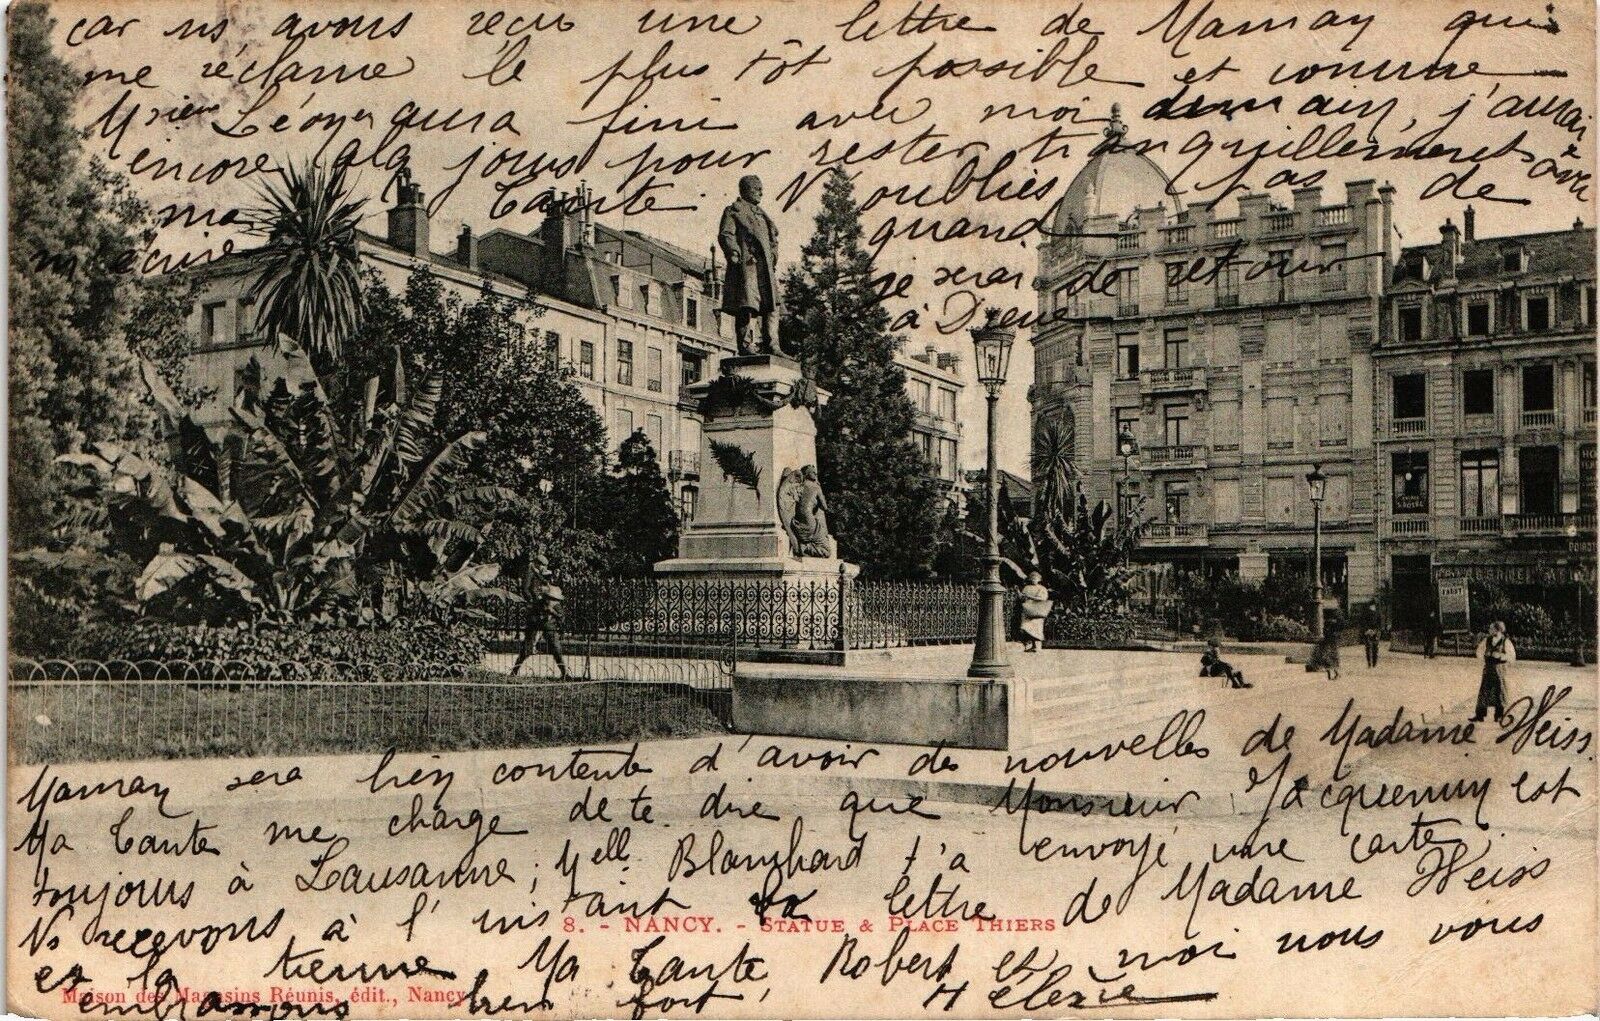 car ns avons reçu une lettre de Maman qui
me réclame le plus tôt possible et comme
Mr Léon aura fini avec moi demain, j'aurai
encore qlq jours pour rester tranquillement avec
ma Tante. N'oublies pas de
m'écrire quand
je serai de retour
à Dieue
Maman sera bien contente d'avoir des nouvelles de Madame Weiss
Ma Tante me charge de te dire que Monsieur Jacquemin est
toujours à Lausanne; Melle Blanchard t'a envoyé une carte
Ns recevons à l'instant la lettre de Madame Weiss
8. - NANCY. - STATUE & PLACE THIERS
et la tienne Ma Tante, Robert et moi nous vous
Maison des Magasins Réunis, édit., Nancy
embrassons bien fort, Hélène